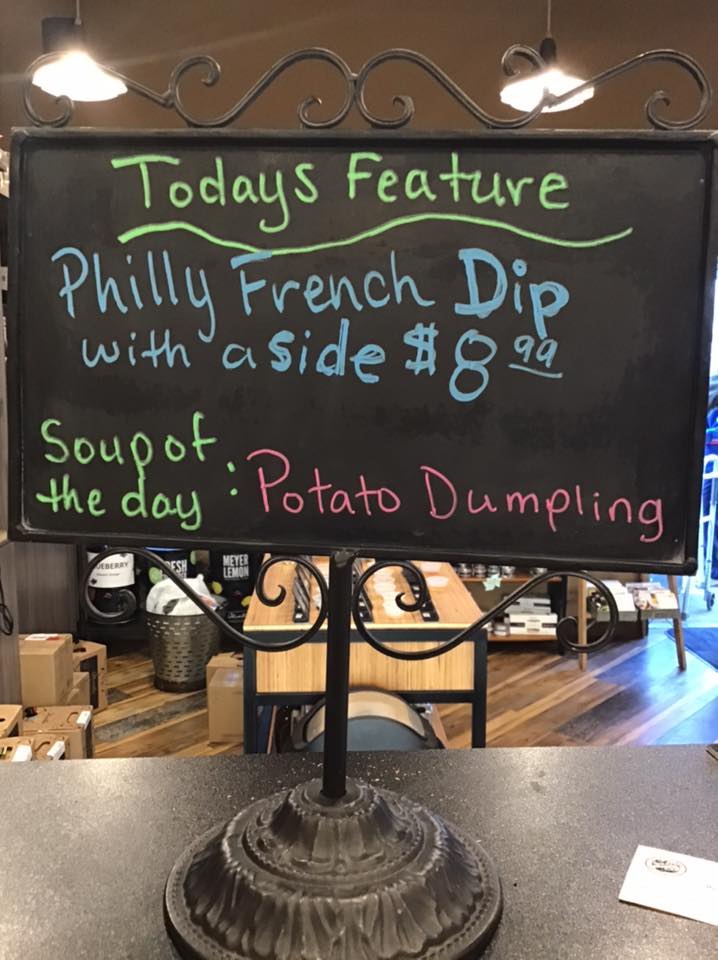 Todays Feature
Philly French Dip
with a side $8 99
Soup of
the day : Potato Dumpling
MEYER
LEMON